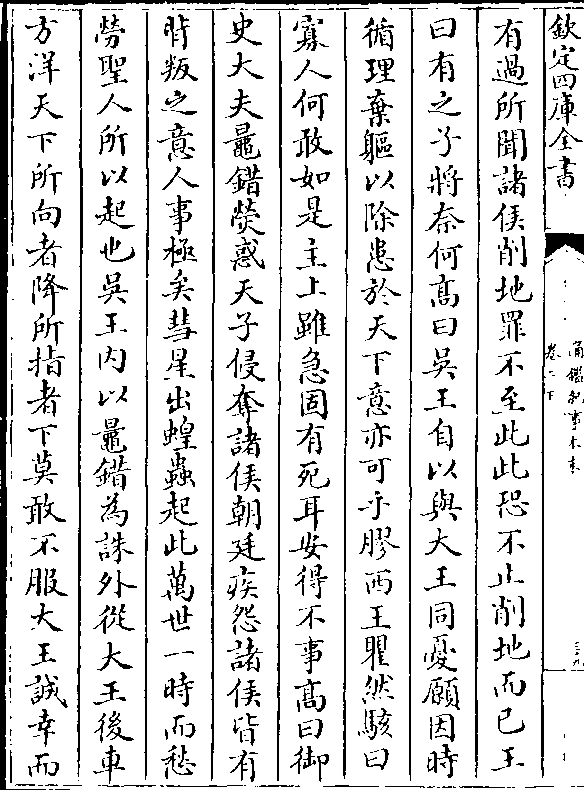 欽定四庫全書
通鑑紀事本末
卷二下
有過所聞諸侯削地罪不至此此恐不止削地而已王
曰有之子將奈何髙曰吳王自以與大王同憂願因時
循理棄軀以除患於天下意亦可乎膠西王瞿然駭曰
寡人何敢如是主上雖急固有死耳安得不事髙曰御
史大夫鼂錯熒惑天子侵奪諸侯朝廷疾怨諸侯皆有
背叛之意人事極矣彗星出蝗蟲起此萬世一時而愁
勞聖人所以起也吳王内以鼂錯為誅外從大王後車
方洋天下所向者降所指者下莫敢不服大王誠幸而